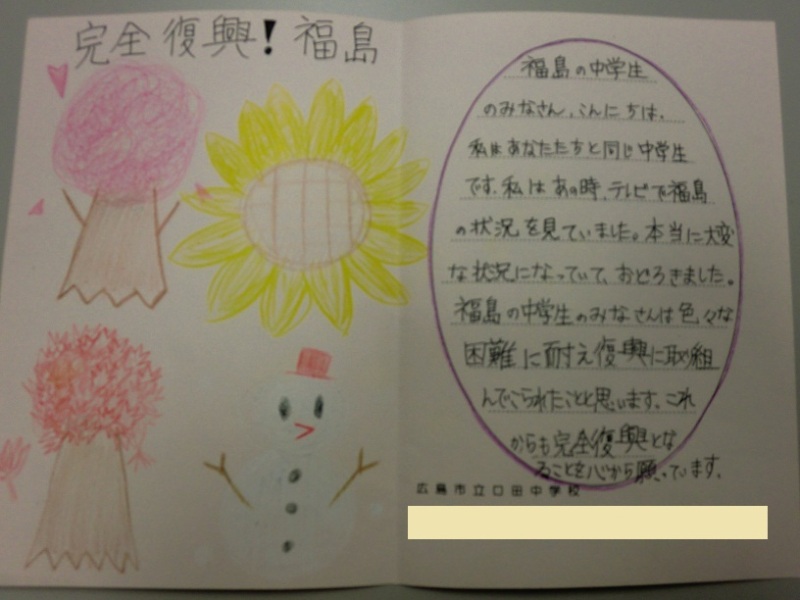 完全復興!福島
福島の中学生
のみなさん、こんにちは。
私はあなたたちと同じ中学生
です。私はあの時、テレビで福島
の状況を見ていました。本当に大変
な状況になっていて、おどろきました。
福島の中学生のみなさんは色々な
困難に耐え復興に取組
んでこられたことと思います。これ
からも完全復興とな
ることを心から願っています。
広島市立口田中学校